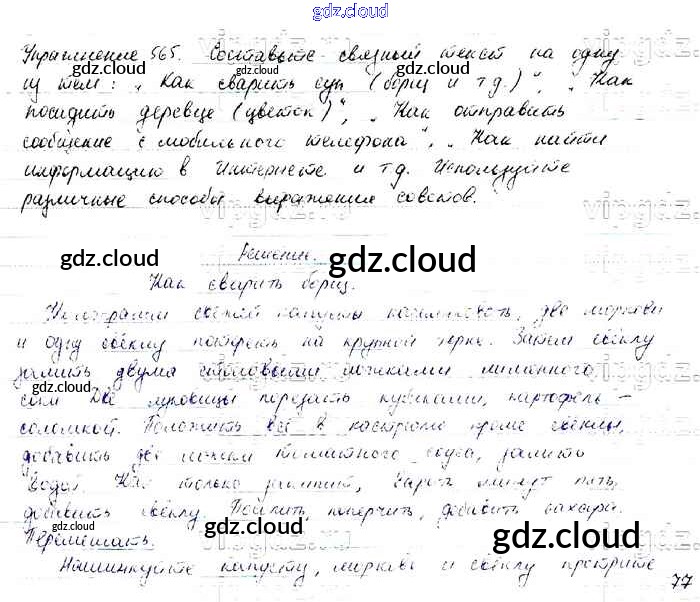 gdz.cloud
Упражнение 565. Составьте связный текст на одну
из тем: „Как сварить суп (борщ и т.д.)“, „Как
посадить деревце (цветок)“, „Как отправить
сообщение с мобильного телефона“, „Как найти
информацию в Интернете и т.д. Используйте
различные способы выражения советов.
Решение.
Как сварить борщ.
свежей капусты нашинковать, две моркови
и одну свёклу потереть на крупной терке. Затем свёклу
залить двумя столовыми ложками лимонного
сока Две луковицы порезать кубиками, картофель –
соломкой. Положить всё в кастрюлю кроме свёклы,
добавить две ложки томатного соуса, залить
водой. Как только закипит, варить минут пять,
добавить свёклу. Посолить, поперчить, добавить сахара.
Перемешать.
Нашинкуйте капусту, морковь и свёклу протрите
77